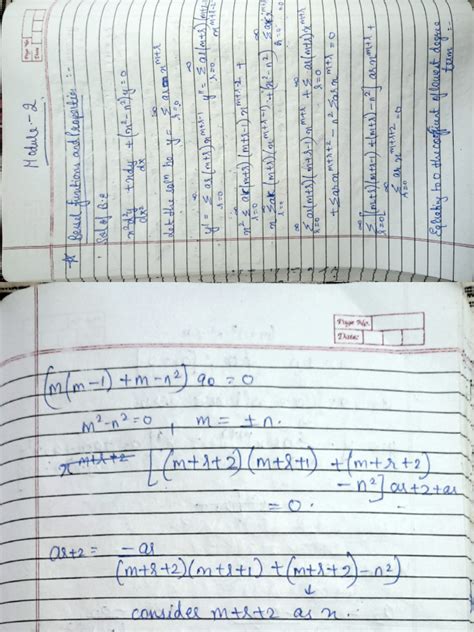 Page No.
Date
Module-2
☆ Bessel functions and Properties :-
Sol of B.E
x² d²y/dx² + x dy/dx + (x²-n²)y = 0
Let the solⁿ be y = ∞Σr=0 ar x^m+r
y' = Σ ar(m+r) x^m+r-1 y'' = Σ ar(m+r)(m+r-1) x^m+r-2
x² ∞Σr=0 ar(m+r)(m+r-1) x^m+r-2 +
x Σ ar (m+r) x^m+r-1 + (x²-n²) Σ ar x^m+r
∞Σr=0 ar(m+r)(m+r-1) x^m+r + ∞Σr=0 ar(m+r) x^m+r
+ Σ ar x^m+r+2 - n² Σ ar x^m+r = 0
∞Σr=0 [(m+r)(m+r-1)+(m+r)-n²] ar x^m+r +
∞Σr=0 ar x^m+r+2 = 0
Equating to 0 the coefficient of lowest degree
term :-
Page No.
Date:
[m(m-1) + m-n²] a0 = 0
m²-n² = 0 , m = ±n.
x^m+r+2 [(m+r+2)(m+r+1) + (m+r+2)
-n²] ar+2 + ar
= 0.
ar+2 = -ar
(m+r+2)(m+r+1) + (m+r+2)-n²)
↓
consider m+r+2 as x.